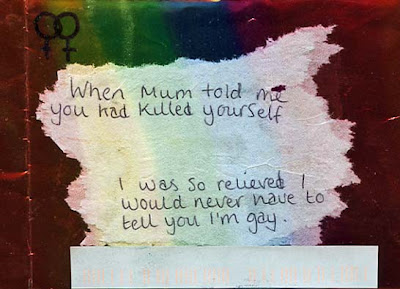 When Mum told me
you had killed yourself
I was so relieved I
would never have to
tell you I'm gay.